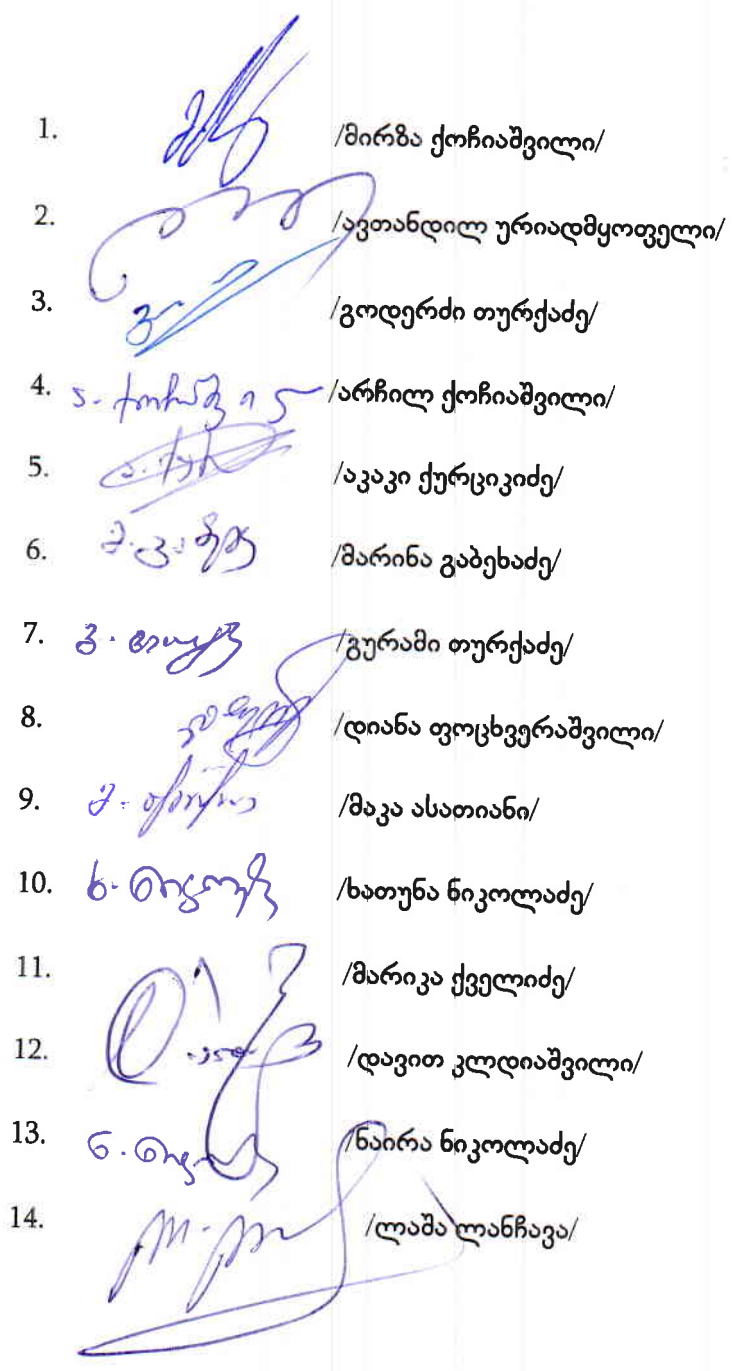 1. /მირზა ქოჩიაშვილი/
2. /ავთანდილ ურიადმყოფელი/
3. /გოდერძი თურქაძე/
4. /არჩილ ქოჩიაშვილი/
5. /აკაკი ქურციკიძე/
6. /მარინა გაბეხაძე/
7. /გურამი თურქაძე/
8. /დიანა ფოცხვერაშვილი/
9. /მაკა ასათიანი/
10. /ხათუნა ნიკოლაძე/
11. /მარიკა ქველიძე/
12. /დავით კლდიაშვილი/
13. /ნაირა ნიკოლაძე/
14. /ლაშა ლანჩავა/